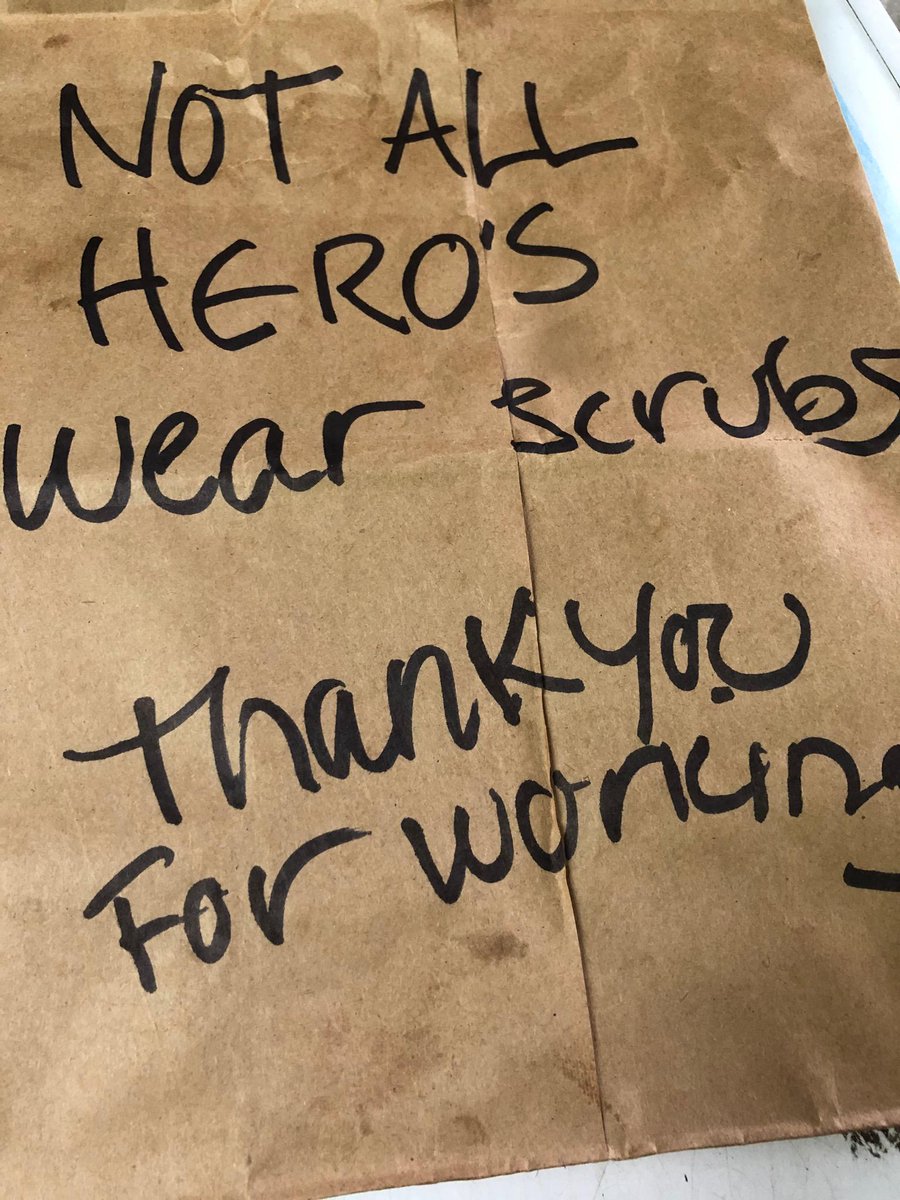 NOT ALL
HERO'S
wear scrubs
Thank you
For working